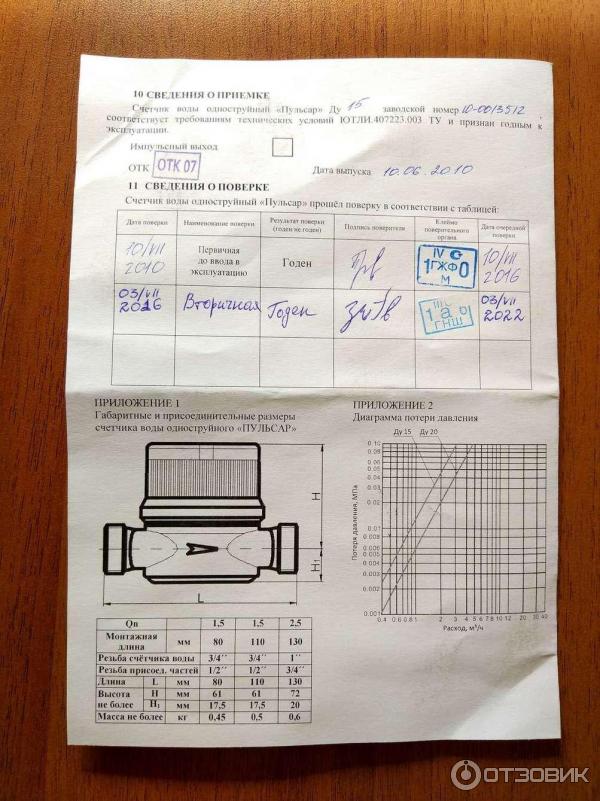 10 СВЕДЕНИЯ О ПРИЕМКЕ
Счетчик воды одноструйный «Пульсар» Ду 15 заводской номер 10-0013512,
соответствует требованиям технических условий ЮТЛИ.407223.003 ТУ и признан годным к
эксплуатации.
Импульсный выход
ОТК ОТК 07 Дата выпуска 10.06.2010
11 СВЕДЕНИЯ О ПОВЕРКЕ
Счетчик воды одноструйный «Пульсар» прошёл поверку в соответствии с таблицей:
Дата поверки Наименование поверки Результат поверки (годен не годен) Подпись поверителя Клеймо поверительного органа Дата очередной поверки
10/VII 2010 Первичная до ввода в эксплуатацию Годен IV 1ГЖФ0 М 10/VII 2016
03/VII 2016 Вторичная Годен III 1 а 6 ГНШ 03/VII 2022
ПРИЛОЖЕНИЕ 1
Габаритные и присоединительные размеры
счетчика воды одноструйного «ПУЛЬСАР»
H
H₁
L
Qn 1,5 1,5 2,5
Монтажная длина мм 80 110 130
Резьба счётчика воды 3/4´´ 3/4´´ 1´´
Резьба присоед. частей 1/2´´ 1/2´´ 3/4´´
Длина L мм 80 110 130
Высота не более H мм 61 61 72
H₁ мм 17,5 17,5 20
Масса не более кг 0,45 0,5 0,6
ПРИЛОЖЕНИЕ 2
Диаграмма потери давления
Ду 15 Ду 20
Потеря давления, МПа
0.10
0.08
0.06
0.05
0.04
0.03
0.02
0.01
0.008
0.006
0.005
0.004
0.003
0.002
0.001
0.4 0.6 0.8 1 2 3 4 5 6 7 8 10 20 30 40
Расход, м³/ч
ОТЗОВИК